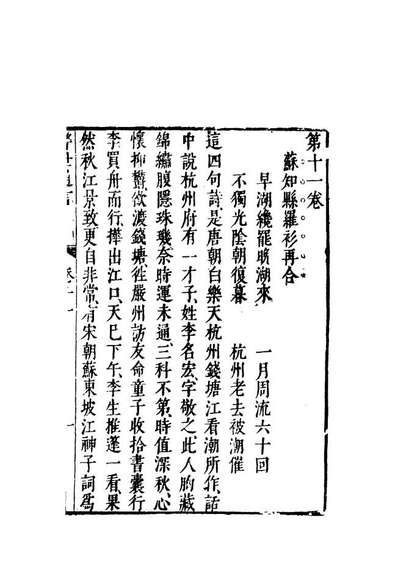 第十一卷
蘇知縣羅衫再合
早潮纔罷晚潮來　一月周流六十回
不獨光陰朝復暮　杭州老去被潮催
這四句詩是唐朝白樂天杭州錢塘江看潮所作、話
中說杭州府有一才子、姓李名宏、字敬之、此人胸藏
錦繡、腹隱珠璣、奈時運未通、三科不第、時值深秋、心
懷抑欝、欲渡錢塘、往嚴州訪友、命童子收拾書囊行
李、買舟而行、撶出江口、天已下午、李生推蓬一看、果
然秋江景致、更自非常、有宋朝蘇東坡江神子詞爲
警世通言　卷十一　一